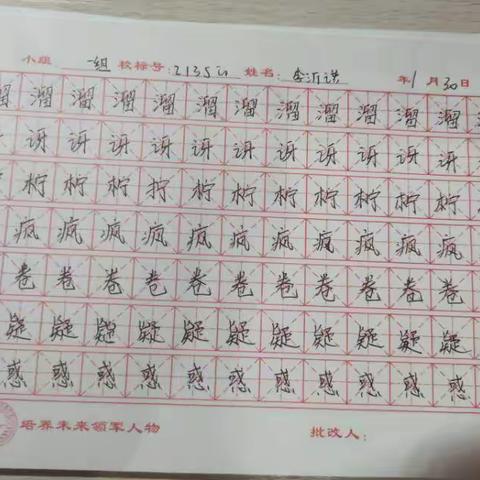 小组 一组 校标号: 2135 姓名: 年1月30日
溜 溜 溜 溜 溜 溜 溜 溜 溜 溜 溜
讶 讶 讶 讶 讶 讶 讶 讶 讶 讶 讶
柠 柠 柠 拧 柠 柠 柠 柠 柠 柠 柠
疯 疯 疯 疯 疯 疯 疯 疯 疯 疯 疯
卷 卷 卷 卷 卷 卷 卷 卷 卷 卷 卷
疑 疑 疑 疑 疑 疑 疑 疑 疑 疑 疑
惑 惑 惑 惑 惑 惑 惑 惑 惑 惑 惑
培养未来领军人物 批改人: